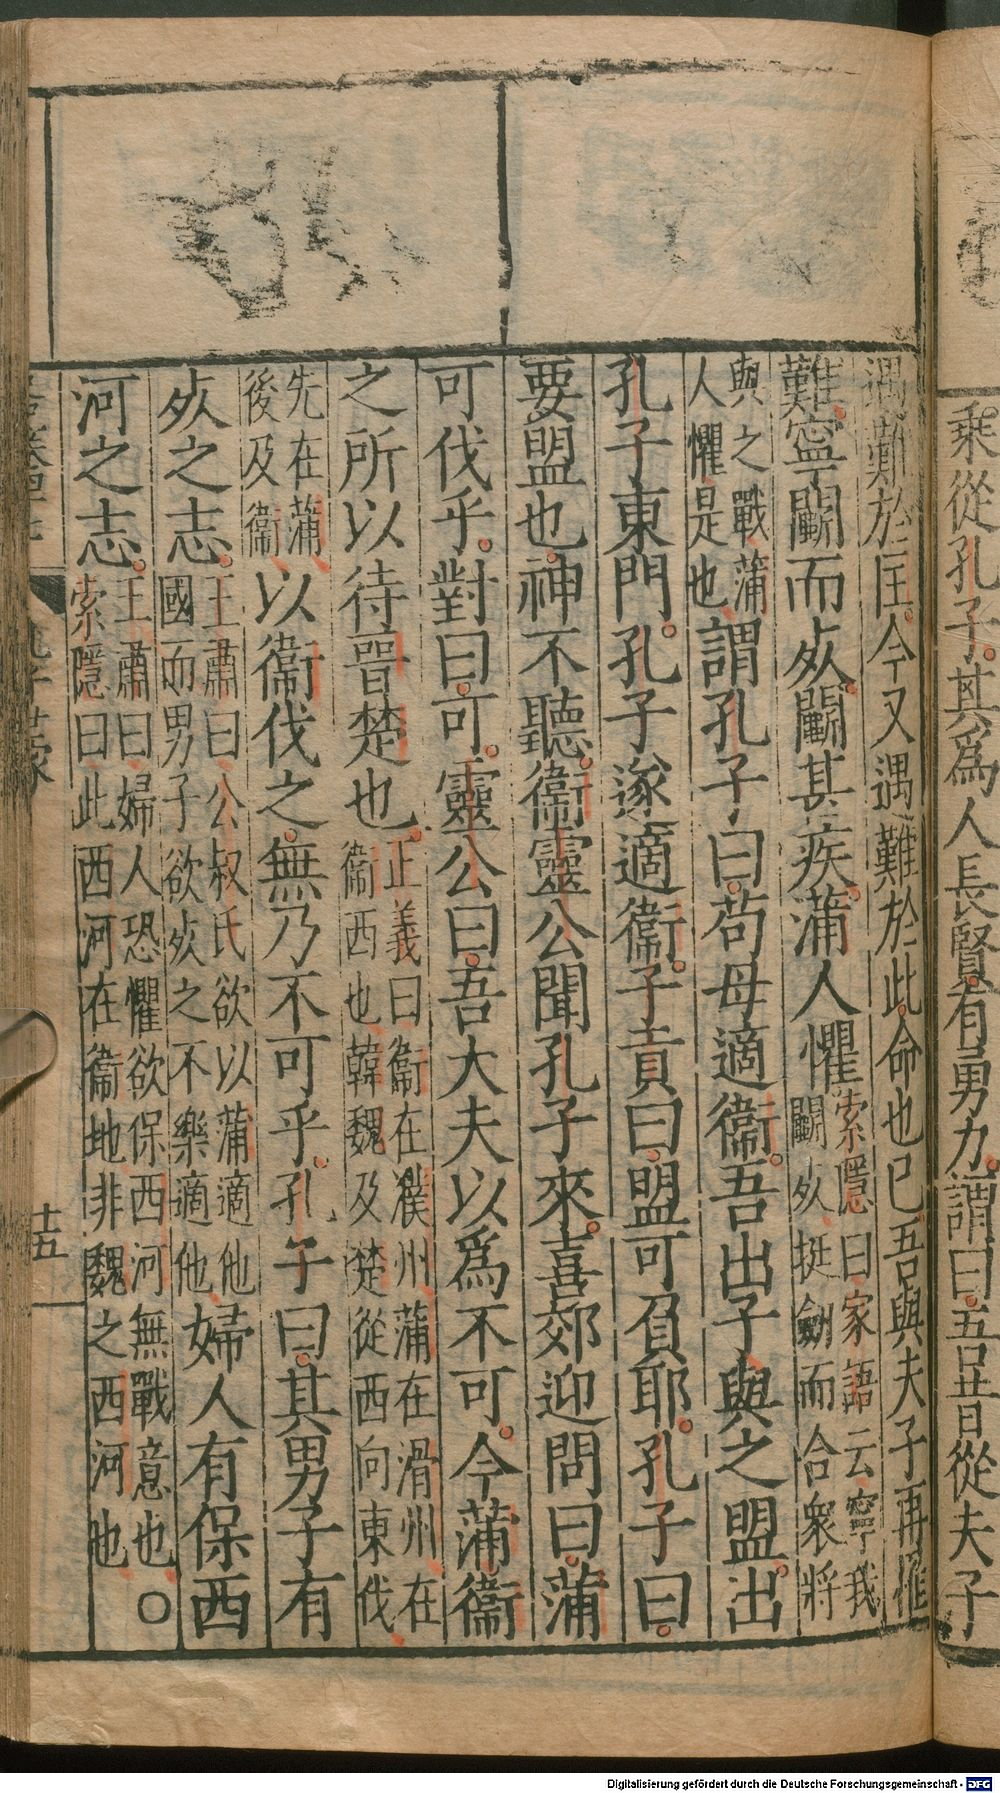 乘從孔子其爲人長賢有勇力謂曰吾昔從夫子
遇難於匡今又遇難於此命也已吾與夫子再罹
難寧鬬而死鬬甚疾蒲人懼索隱曰家語云寧我
鬬死挺劍而合衆將
與之戰蒲
人懼是也謂孔子曰苟毋適衞吾出子與之盟出
孔子東門孔子遂適衞子貢曰盟可負耶孔子曰
要盟也神不聽衞靈公聞孔子來喜郊迎問曰蒲
可伐乎對曰可靈公曰吾大夫以爲不可今蒲衞
之所以待晉楚也正義曰衞在濮州蒲在滑州在
衞西也韓魏及楚從西向東伐
先在蒲
後及衞以衞伐之無乃不可乎孔子曰其男子有
死之志王肅曰公叔氏欲以蒲適他
國而男子欲死之不樂適他婦人有保西
河之志王肅曰婦人恐懼欲保西河無戰意也〇
索隱曰此西河在衞地非魏之西河也
孔子世家
十五
Digitalisierung gefördert durch die Deutsche Forschungsgemeinschaft - DFG